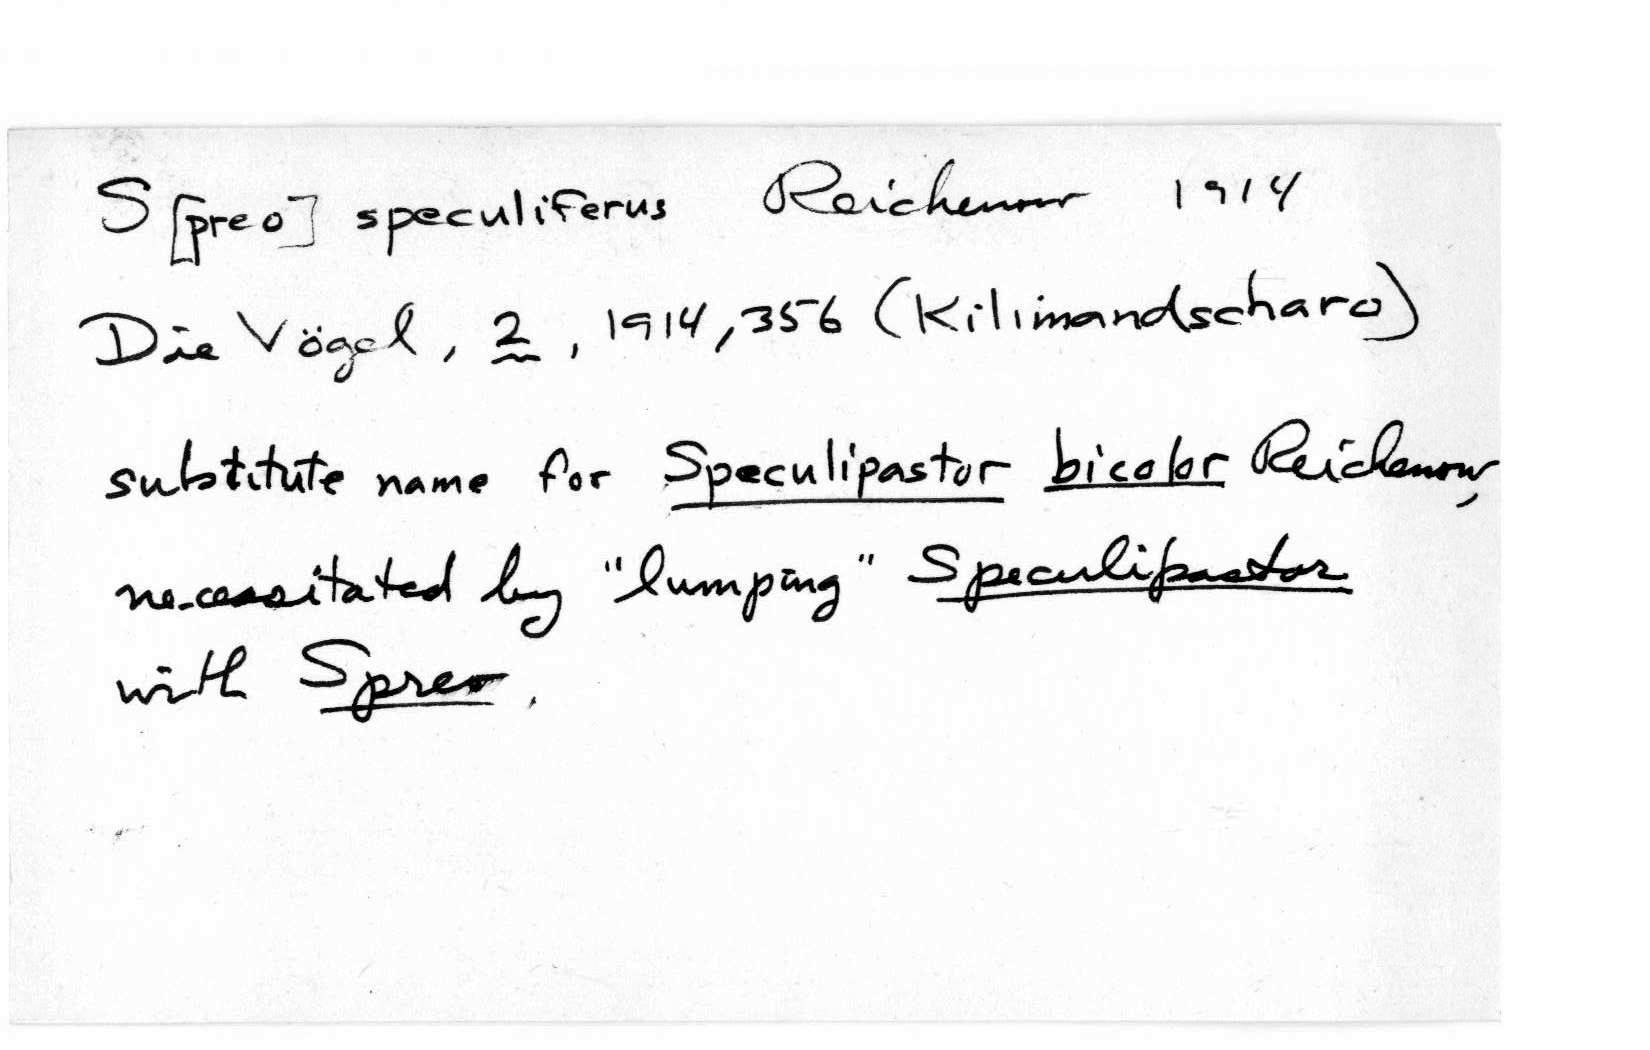 S[preo] speculiferus Reichenow 1914
Die Vögel, 2, 1914, 356 (Kilimandscharo)
substitute name for Speculipastor bicolor Reichenow,
necessitated by "lumping" Speculipastor
with Spreo.